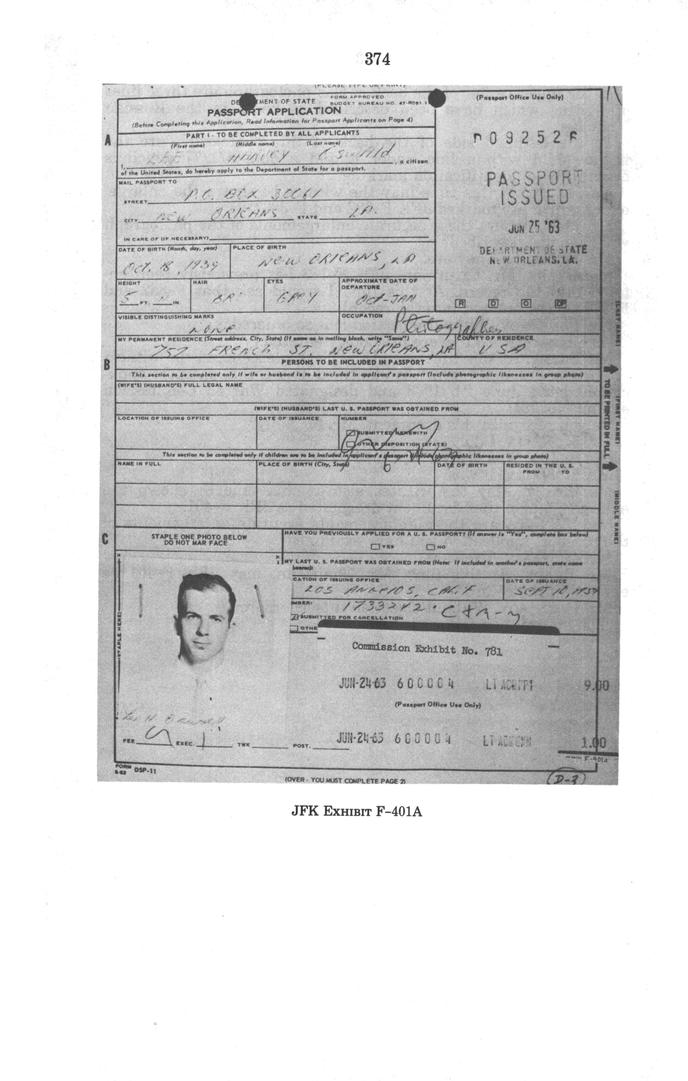 374
(PLEASE TYPE OR PRINT)
FORM APPROVED
DE MENT OF STATE BUDGET BUREAU NO. 47-R081
PASSPORT APPLICATION
(Before Completing this Application, Read Information for Passport Applicants on Page 4)
A
PART I - TO BE COMPLETED BY ALL APPLICANTS
(First name) (Middle name) (Last name)
I, LEE HARVEY Oswald, a citizen
of the United States, do hereby apply to the Department of State for a passport.
MAIL PASSPORT TO
STREET P.O. BOX 30061
CITY NEW ORLEANS STATE LA.
IN CARE OF (IF NECESSARY)
(Passport Office Use Only)
D092526
PASSPORT
ISSUED
JUN 25 '63
DEPARTMENT OF STATE
NEW ORLEANS, LA.
R D O DP
DATE OF BIRTH (Month, day, year) PLACE OF BIRTH
Oct. 18, 1939 NEW ORLEANS, LA
HEIGHT HAIR EYES APPROXIMATE DATE OF DEPARTURE
5 FT. IN. BR. GREY OCT-JAN
VISIBLE DISTINGUISHING MARKS OCCUPATION
NONE Photographer
MY PERMANENT RESIDENCE (Street address, City, State) (If same as in mailing block, write "Same") COUNTY OF RESIDENCE
757 FRENCH ST. NEW ORLEANS, LA USA
B
PERSONS TO BE INCLUDED IN PASSPORT
This section to be completed only if wife or husband is to be included in applicant's passport (Include photographic likenesses in group photo)
(WIFE'S) (HUSBAND'S) FULL LEGAL NAME
(WIFE'S) (HUSBAND'S) LAST U. S. PASSPORT WAS OBTAINED FROM
LOCATION OF ISSUING OFFICE DATE OF ISSUANCE NUMBER
SUBMITTED HEREWITH
OTHER DISPOSITION (STATE)
This section to be completed only if children are to be included in applicant's passport photographic likenesses in group photo)
NAME IN FULL PLACE OF BIRTH (City, State) DATE OF BIRTH RESIDED IN THE U. S.
FROM TO
(LAST NAME)
TO BE PRINTED IN FULL
(FIRST NAME)
(MIDDLE NAME)
C
STAPLE ONE PHOTO BELOW
DO NOT MAR FACE
STAPLE HERE
HAVE YOU PREVIOUSLY APPLIED FOR A U. S. PASSPORT? (If answer is "Yes", complete box below)
YES NO
MY LAST U. S. PASSPORT WAS OBTAINED FROM (Note: If included in another's passport, state name
below):
CATION OF ISSUING OFFICE DATE OF ISSUANCE
LOS ANGELOS, CALIF SEPT 10, 1959
MBER:
1733242
SUBMITTED FOR CANCELLATION
OTHE
Commission Exhibit No. 781
JUN-24-63 600004 9.00
(Passport Office Use Only)
JUN-24-63 600004 1.00
Lee H. Oswald
FEE EXEC. TWX POST.
F-401A
FORM
DSP-11
(OVER - YOU MUST COMPLETE PAGE 2)
(D-3)
JFK EXHIBIT F-401A